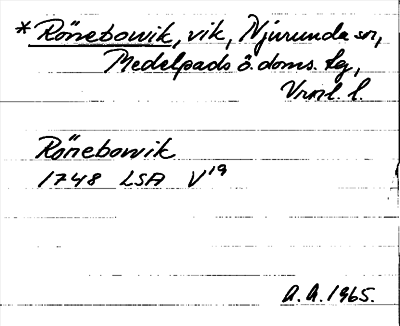 *Rönebowik, vik, Njurunda sn,
Medelpads ö. doms. tg,
Vnrl. l.
Rönebowik
1748 LSA V19
A.A. 1965.